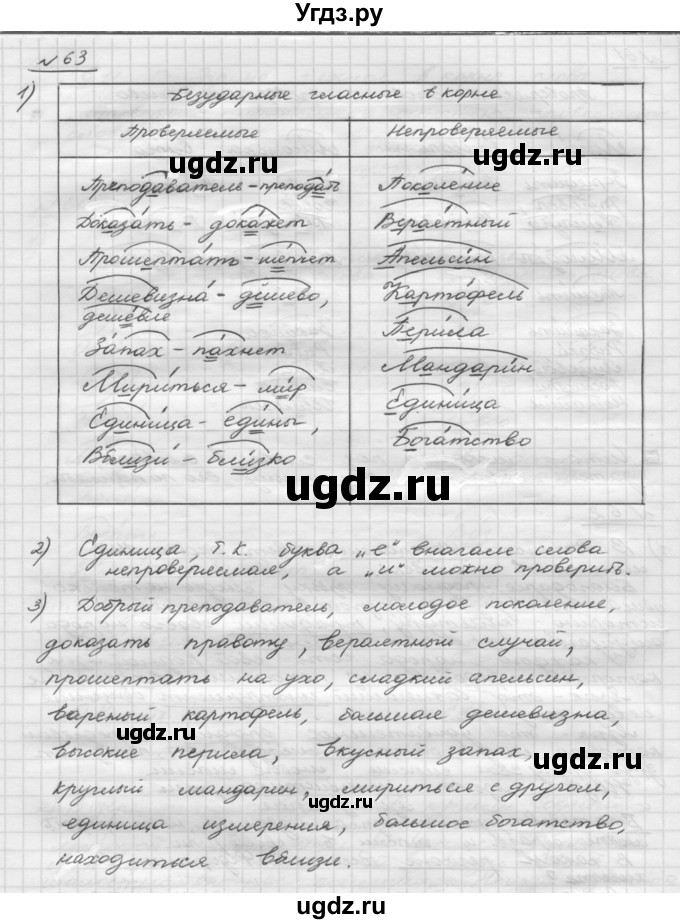 Угдз.ру
№ 63
1) Безударные гласные в корне
Проверяемые Непроверяемые
Преподаватель - преподать Поколение
Доказать - докажет Вераятный
Прошептать - шепчет Апельсин
Дешевизна - дёшево, Картофель
дешевле Перила
Запах - пахнет Мандарин
Мириться - мир Единица
Единица - едины, Богатство
Вблизи - близко
ugdz.ru
ugdz.ru
ugdz.ru
ugdz.ru
ugdz.ru
2) Единица, т.к. буква „е“ вначале слова
непроверяемая, а „и“ можно проверить.
3) Добрый преподаватель, молодое поколение,
доказать правоту, вераятный случай,
прошептать на ухо, сладкий апельсин,
вареный картофель, большая дешевизна,
высокие перила, вкусный запах,
круглый мандарин, мириться с другом,
единица измерения, большое богатство,
находиться вблизи.
ugdz.ru
ugdz.ru
ugdz.ru
ugdz.ru